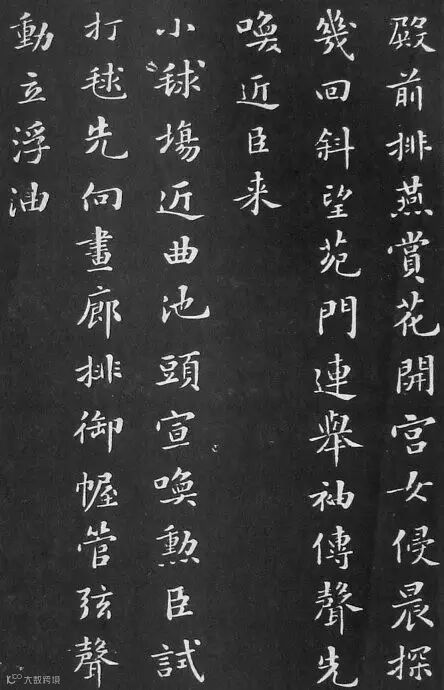 殿前排燕賞花開宮女侵晨探
幾回斜望苑門連舉袖傳聲先
喚近臣来
小毬場近曲池頭宣喚勲臣試
打毬先向畫廊排御幄管弦聲
動立浮油
大数跨境